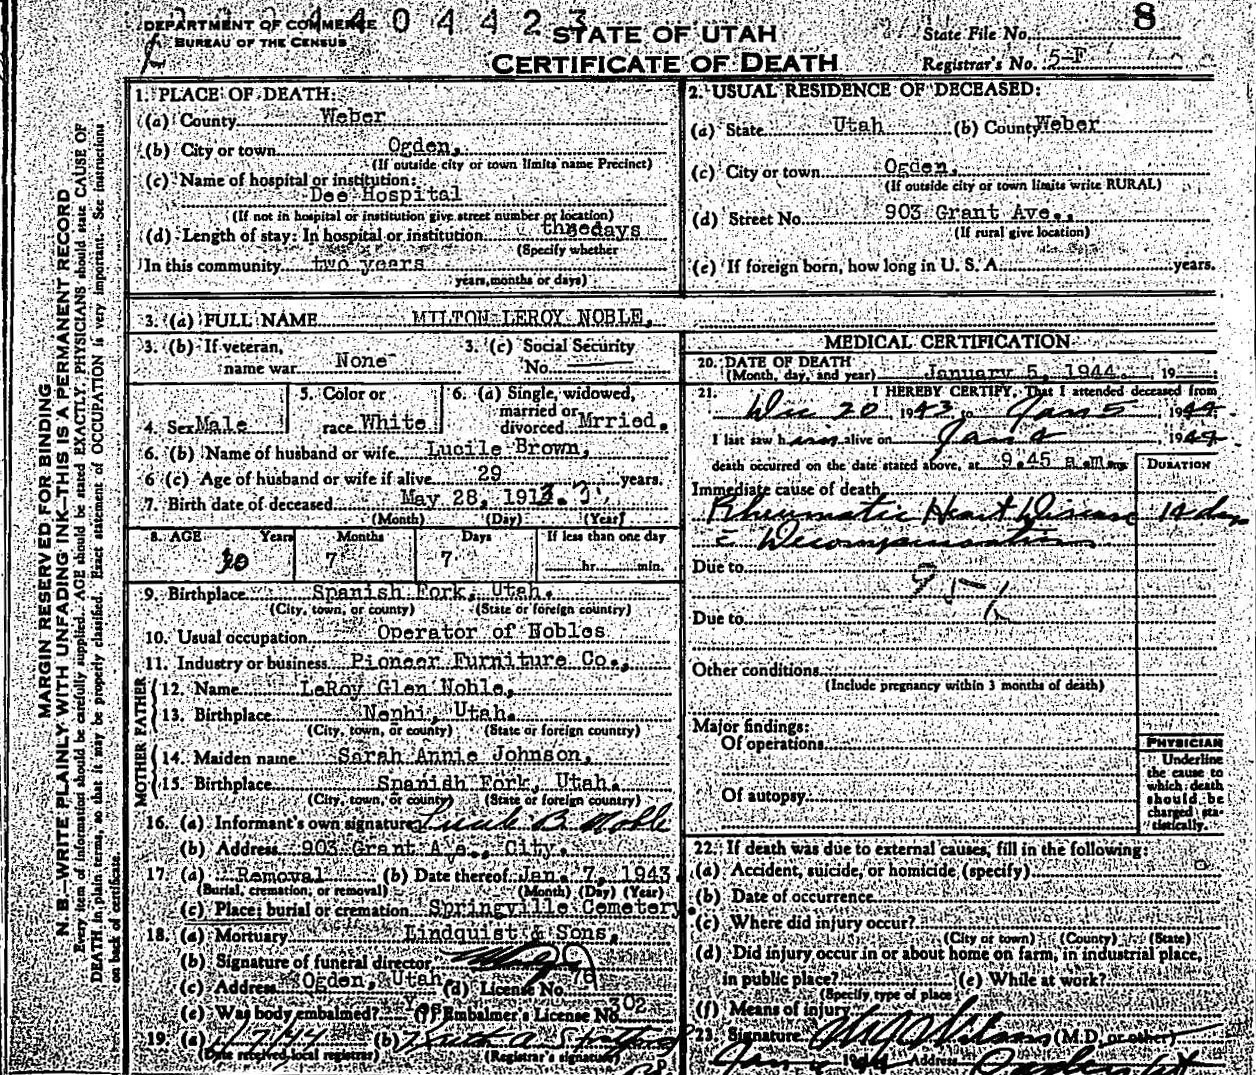 DEPARTMENT OF COMMERCE
BUREAU OF THE CENSUS
4 0 4 4 2 3
STATE OF UTAH
CERTIFICATE OF DEATH
State File No. 8
Registrar's No. 5-F
MARGIN RESERVED FOR BINDING
N. B.—WRITE PLAINLY WITH UNFADING INK—THIS IS A PERMANENT RECORD
Every item of information should be carefully supplied. AGE should be stated EXACTLY. PHYSICIANS should state CAUSE OF
DEATH in plain terms, so that it may be properly classified. Exact statement of OCCUPATION is very important. See instructions
on back of certificate.
1. PLACE OF DEATH:
(a) County Weber
(b) City or town Ogden,
(If outside city or town limits name Precinct)
(c) Name of hospital or institution:
Dee Hospital
(If not in hospital or institution give street number or location)
(d) Length of stay: In hospital or institution days
(Specify whether
In this community two years
years, months or days)
2. USUAL RESIDENCE OF DECEASED:
(a) State Utah (b) County Weber
(c) City or town Ogden,
(If outside city or town limits write RURAL)
(d) Street No. 903 Grant Ave.,
(If rural give location)
(e) If foreign born, how long in U. S. A. years.
3. (a) FULL NAME MILTON LEROY NOBLE,
3. (b) If veteran, name war None
3. (c) Social Security No.
4. Sex Male
5. Color or race White
6. (a) Single, widowed, married or divorced Mrried.
6. (b) Name of husband or wife Lucile Brown,
6 (c) Age of husband or wife if alive 29 years.
7. Birth date of deceased May 28, 191
(Month) (Day) (Year)
8. AGE Years Months Days If less than one day
30 7 7 hr. min.
9. Birthplace Spanish Fork, Utah.
(City, town, or county) (State or foreign country)
10. Usual occupation Operator of Nobles
11. Industry or business Pioneer Furniture Co.,
FATHER
12. Name LeRoy Glen Noble,
13. Birthplace Nephi, Utah.
(City, town, or county) (State or foreign country)
MOTHER
14. Maiden name Sarah Annie Johnson,
15. Birthplace Spanish Fork, Utah.
(City, town, or county) (State or foreign country)
16. (a) Informant's own signature Lucile B Noble
(b) Address 903 Grant Ave., City.
17. (a) Removal (b) Date thereof Jan. 7, 1943.
(Burial, cremation, or removal) (Month) (Day) (Year)
(c) Place; burial or cremation Springville Cemetery.
18. (a) Mortuary Lindquist & Sons,
(b) Signature of funeral director
(c) Address Ogden, Utah (d) License No.
(e) Was body embalmed? Yes (f) Embalmer's License No. 302
19. (a) 1/7/44 (b) Ruth A.
(Date received local registrar) (Registrar's signature)
MEDICAL CERTIFICATION
20. DATE OF DEATH
(Month, day, and year) January 5, 1944. , 19
21. I HEREBY CERTIFY, That I attended deceased from
Dec 20, 1943 to Jan 5, 1944.
I last saw him alive on Jan 4, 1944.
death occurred on the date stated above, at 9.45 a.m. m.
DURATION
Immediate cause of death
Rheumatic Heart Disease 14 days
c Decompensation
Due to
95-
Due to
Other conditions
(Include pregnancy within 3 months of death)
Major findings:
Of operations
Of autopsy
PHYSICIAN
Underline
the cause to
which death
should be
charged sta-
tistically.
22. If death was due to external causes, fill in the following:
(a) Accident, suicide, or homicide (specify) o
(b) Date of occurrence
(c) Where did injury occur?
(City or town) (County) (State)
(d) Did injury occur in or about home on farm, in industrial place,
in public place? (e) While at work?
(Specify type of place)
(f) Means of injury
23. Signature (M.D. or other)
1944 Address Ogden Ut